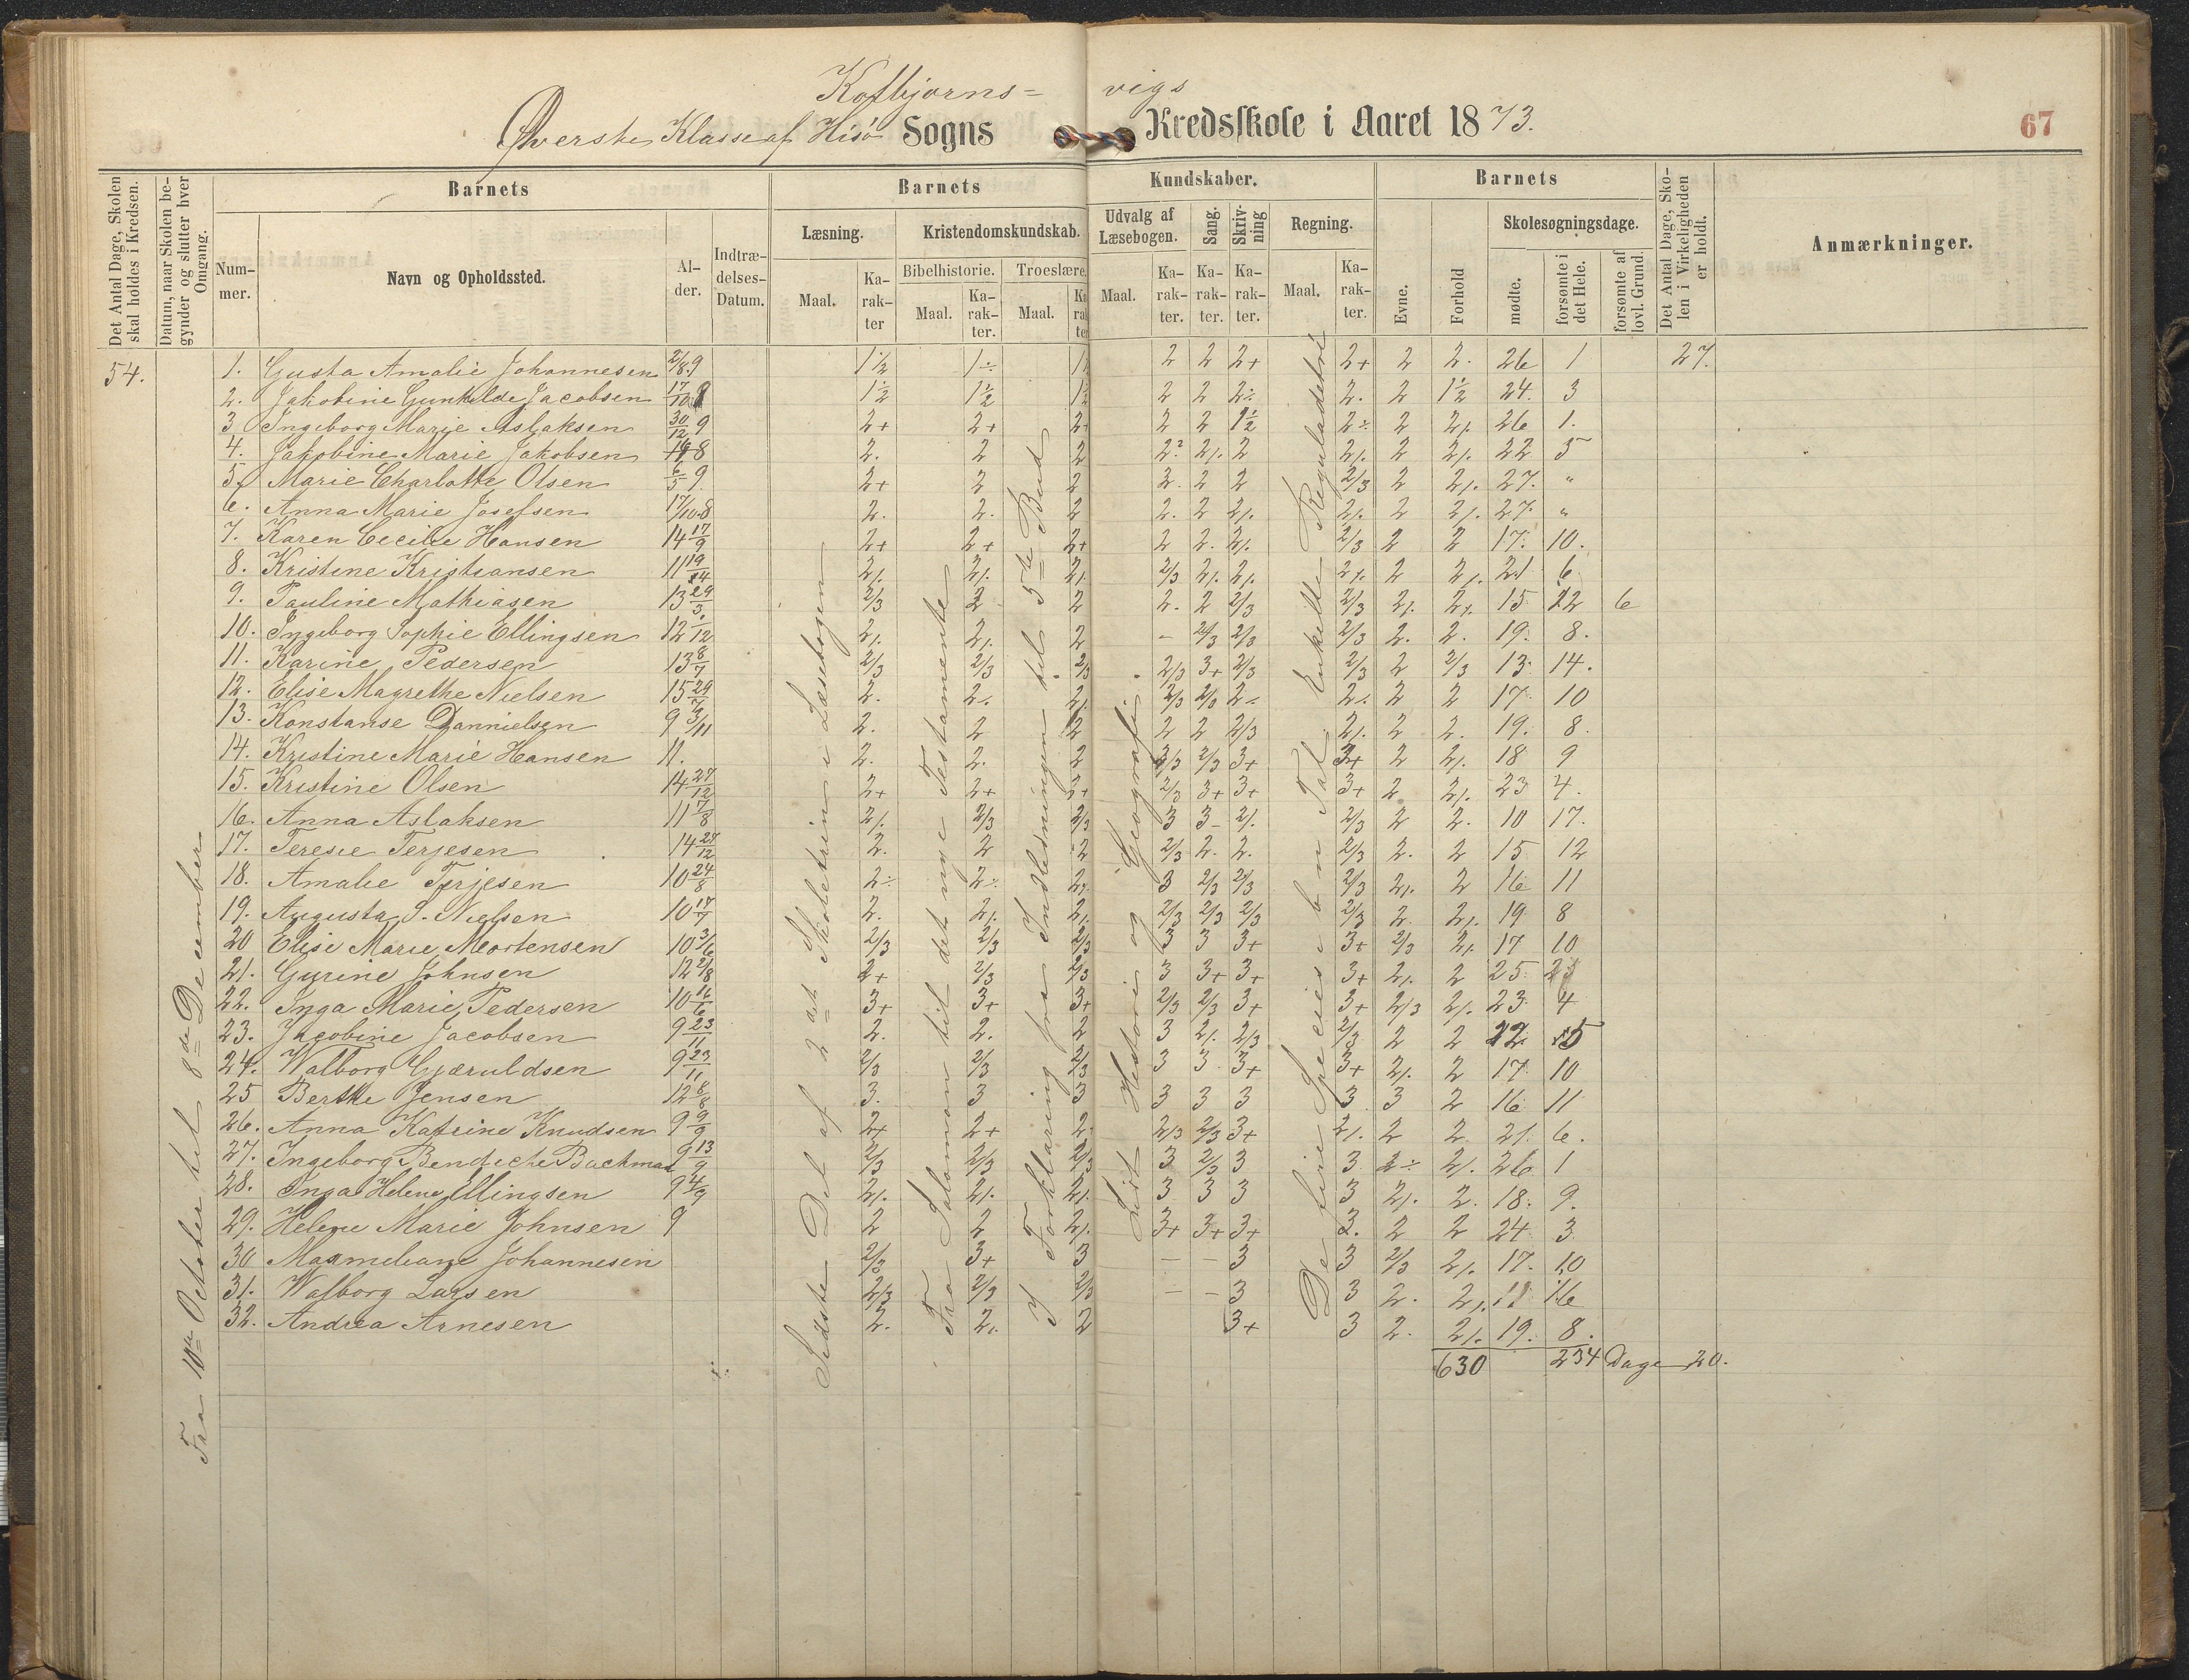 Kolbjørns= vigs
Øverste Klasse af Hisø Sogns Kredsskole i Aaret 1873.
67
Det Antal Dage, Skolen skal holdes i Kredsen.
Datum, naar Skolen begynder og slutter hver Omgang.
Barnets
Barnets Kundskaber.
Barnets
Det Antal Dage, Skolen i Virkeligheden er holdt.
Anmærkninger.
Nummer.
Navn og Opholdssted.
Alder.
Indtrædelses-Datum.
Læsning.
Kristendomskundskab.
Bibelhistorie.
Troeslære.
Udvalg af Læsebogen.
Sang.
Skrivning
Regning.
Evne.
Forhold
Skolesøgningsdage.
mødte.
forsømte i det Hele.
forsømte af lovl. Grund.
Maal. Karakter Maal. Karakter. Maal. Maal. Karakter. Karakter. Karakter. Maal. Karakter.
54.
Fra 10de October til 8de December
Sidste Del af 2det Skoletrin i Læsebogen
Fra Salomon til det nye Testamente
I Forklaring fra Indledningen til 5te Bud
Lidt Historie og Geografi.
De fire Species i ben Tal Enkelte Reguladetri
1. Gusta Amalie Johannesen 2/8 9 1½ 1÷ 2 2 2+ 2+ 2 2. 26 1 27.
2. Jakobine Gunhilde Jacobsen 17/10 1½ 1½ 2 2 2÷ 2. 2 1½ 24. 3
3 Ingeborg Marie Aslaksen 30/12 9 2+ 2+ 2+ 2 2 1½ 2÷ 2 2/. 26 1.
4. Jakobine Marie Jakobsen 8 2. 2 2 2? 2/. 2 2/. 2 2/. 22 5
5. Marie Charlotte Olsen 6/5 9. 2+ 2 2 2. 2 2 2/3 2 2/. 27. "
6. Anna Marie Josefsen 17/10 8 2. 2. 2 2. 2 2/. 2/. 2 2/. 27. "
7. Karen Cecilie Hansen 14 17/9 2+ 2+ 2+ 2 2. 2/. 2/3 2 2 17. 10.
8. Kristine Kristiansen 11 19/4 2/. 2/. 2/. 2/3 2/. 2/. 2/. 2 2/. 21 6
9. Pauline Mathiasen 13 29/3 2/3 2 2 2. 2 2/3 2/3 2/. 2/. 15 12 6
10. Ingeborg Sophie Ellingsen 12 2/. 2/. 2 – 2/3 2/3 2/3 2. 2. 19. 8.
11. Karine Pedersen 13 8/7 2/3 2/3 2/3 2/3 3+ 2/3 2/3 2 2/3 13. 14.
12. Elise Magrethe Nielsen 15 29/7 2. 2/. 2/. 2/3 2/3 2÷ 2/. 2 2 17. 10
13. Konstanse Dannielsen 9 3/11 2. 2 2 2 2 2/3 2/. 2 2. 19. 8.
14. Kristine Marie Hansen 11. 2. 2. 2 2/3 3+ 3+ 2 2/. 18 9
15. Kristine Olsen 14 27/12 2+ 2+ 2+ 2/3 3+ 3+ 3+ 2 2/. 23 4.
16. Anna Aslaksen 11 7/8 2/. 2/3 2/3 3 3– 2/. 2/3 2 2. 10 17.
17. Teresie Terjesen 14 27/12 2. 2 2 2/3 2. 2. 2/3 2. 2 15 12
18. Amalie Terjesen 10 24/8 2÷ 2÷ 2/. 3 2/3 2/3 2/3 2/. 2 16 11
19. Augusta S. Nielsen 10 17/7 2. 2/. 2/. 2/3 2/3 2/3 2/3 2. 2/. 19. 8
20 Elise Marie Mortensen 10 3/6 2/3 2/3 2/3 3 3 3+ 3+ 2/3 2/. 17 10
21. Gurine Johnsen 12 2/8 2+ 2/3 2/3 3 3+ 3+ 3+ 2/. 2 25
22. Inga Marie Pedersen 10 16/6 3+ 3+ 3+ 2/3 2/3 3+ 3+ 2/3 2/. 23. 4
23. Jacobine Jacobsen 9 23/11 2. 2. 2 3 2/. 2/3 2/3 2 2 22 5
24. Walborg Gjæruldsen 9 23/11 2/3 2/3 2/3 3 3 3+ 3+ 2/. 2 17. 10
25 Berthe Jensen 12 8/8 3. 3 3 3 3 3 3 3 2 16 11
26. Anna Katrine Knudsen 9 9/9 2+ 2+ 2. 2/3 2/3 3+ 2/. 2 2 21. 6.
27. Ingeborg Bendicte Buckman 9 13/9 2/3 2/3 2/3 3 2/3 3 3 2÷ 2/. 26 1
28. Inga Helene Ellingsen 9 4/9 2/. 2/. 2/. 3 3 3 3 2/. 2. 18. 9.
29. Helene Marie Johnsen 9 2 2 2/. 3+ 3+ 3+ 3. 2 2 24 3
30 Maxmeliane Johannesen 2/3 3+ 3 – – 3 3 2/3 2/. 17. 10
31. Walborg Larsen 2/3 2/3 2/3 – – 3 3 2. 2/. 11 16
32. Andrea Arnesen 2. 2/. 2 3+ 3 2. 2/. 19. 8.
630 234 Dage 20.